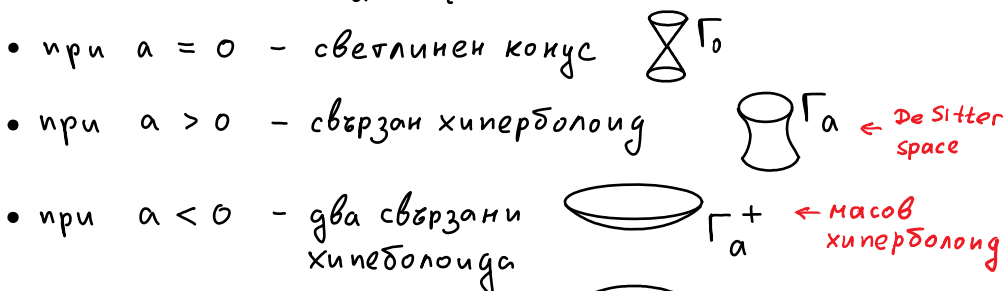 • при a = 0 - светлинен конус Γ₀
• при a > 0 - свързан хиперболоид Γₐ ← De Sitter
space
• при a < 0 - два свързани Γₐ⁺ ← масов
хипеболоида хиперболоид